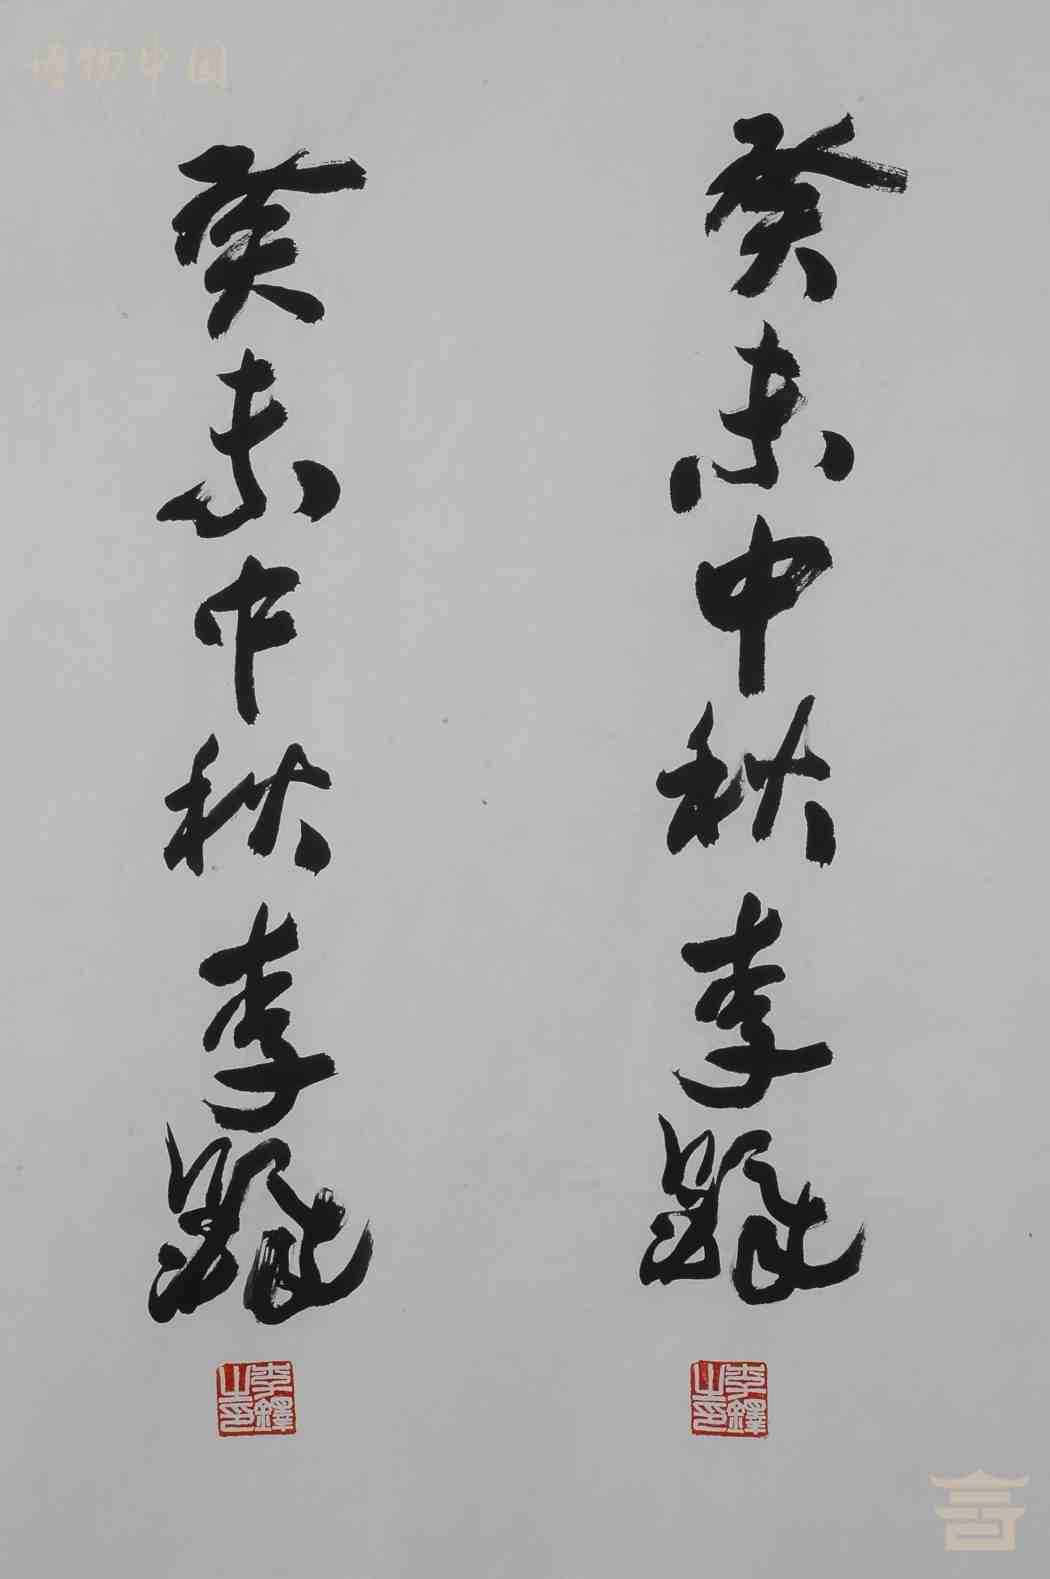 癸未中秋李鐸
癸未中秋李鐸
李鐸之印
李鐸之印
博物中国